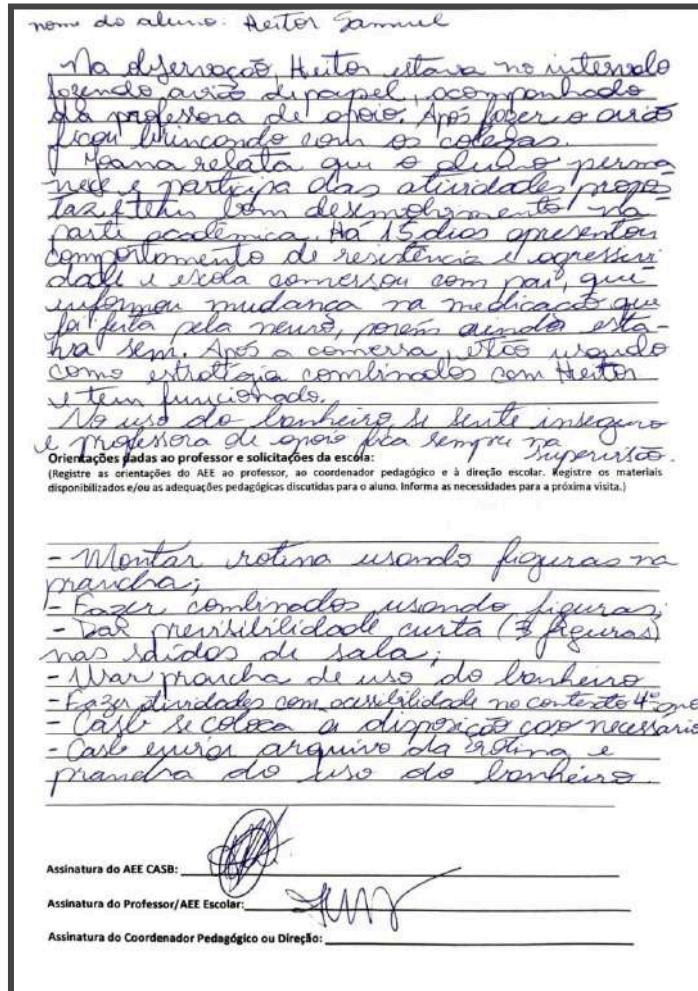 nome do aluno: Heitor Samuel
Na observação, Heitor estava no intervalo
fazendo avião de papel, acompanhado
da professora de apoio. Após fazer o avião
ficou brincando com os colegas.
Joana relata que o aluno perma
nece e participa das atividades propos
tas e tem bom desenvolvimento na
parte acadêmica. Há 15 dias apresentou
comportamento de resistência e agressivi
dade e escola comersou com pai, que
informou mudança na medicação que
foi feita pela neuro, porém ainda esta-
va sem. Após a comersa, estão usando
como estratégia combinados com Heitor
e tem funcionado.
No uso do banheiro se sente inseguro
e professora de apoio fica sempre na supervisão.
Orientações dadas ao professor e solicitações da escola:
(Registre as orientações do AEE ao professor, ao coordenador pedagógico e à direção escolar. Registre os materiais
disponibilizados e/ou as adequações pedagógicas discutidas para o aluno. Informa as necessidades para a próxima visita.)
- Montar rotina usando figuras na
prancha;
- Fazer combinados usando figuras;
- Dar previsibilidade curta (3 figuras)
nas saídas de sala;
- Usar prancha de uso do banheiro
- Fazer atividades com acessibilidade no contexto 4º ano
- Casb se coloca a disposição caso necessário
- Casb enviar arquivo da rotina e
prancha do uso do banheiro.
Assinatura do AEE CASB:
Assinatura do Professor/AEE Escolar:
Assinatura do Coordenador Pedagógico ou Direção: